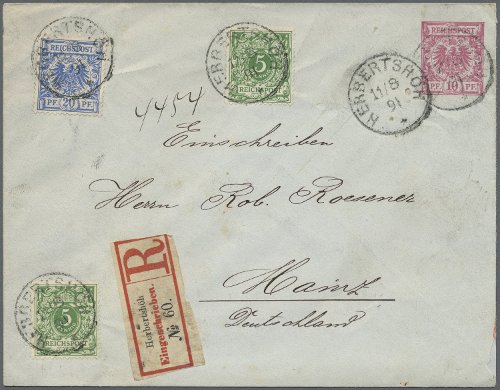 REICHSPOST
PF 20 PF
HERBERTSHÖH
5
REICHSPOST
REICHSPOST
PF 10 PF
HERBERTSHÖH
11/8
91
* *
4454
Einschreiben
Herrn Rob. Roesener
Mainz
Deutschland
R
Herbertshöh
Eingeschrieben.
№ 60.
5
REICHSPOST